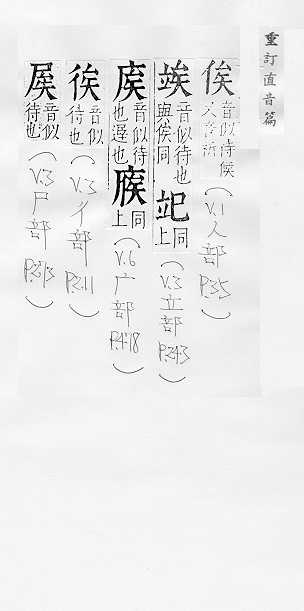 重訂直音篇
俟 音似待候 又音祈 (V.1 人部 P.35)
竢 音似待也 與俟同 同上 (V.3 立部 P.243)
音似待 也遲也 同上 (V.6 广部 P.418)
音似 待也 (V.3 彳部 P.211)
音似 待也 (V.3 尸部 P.213)